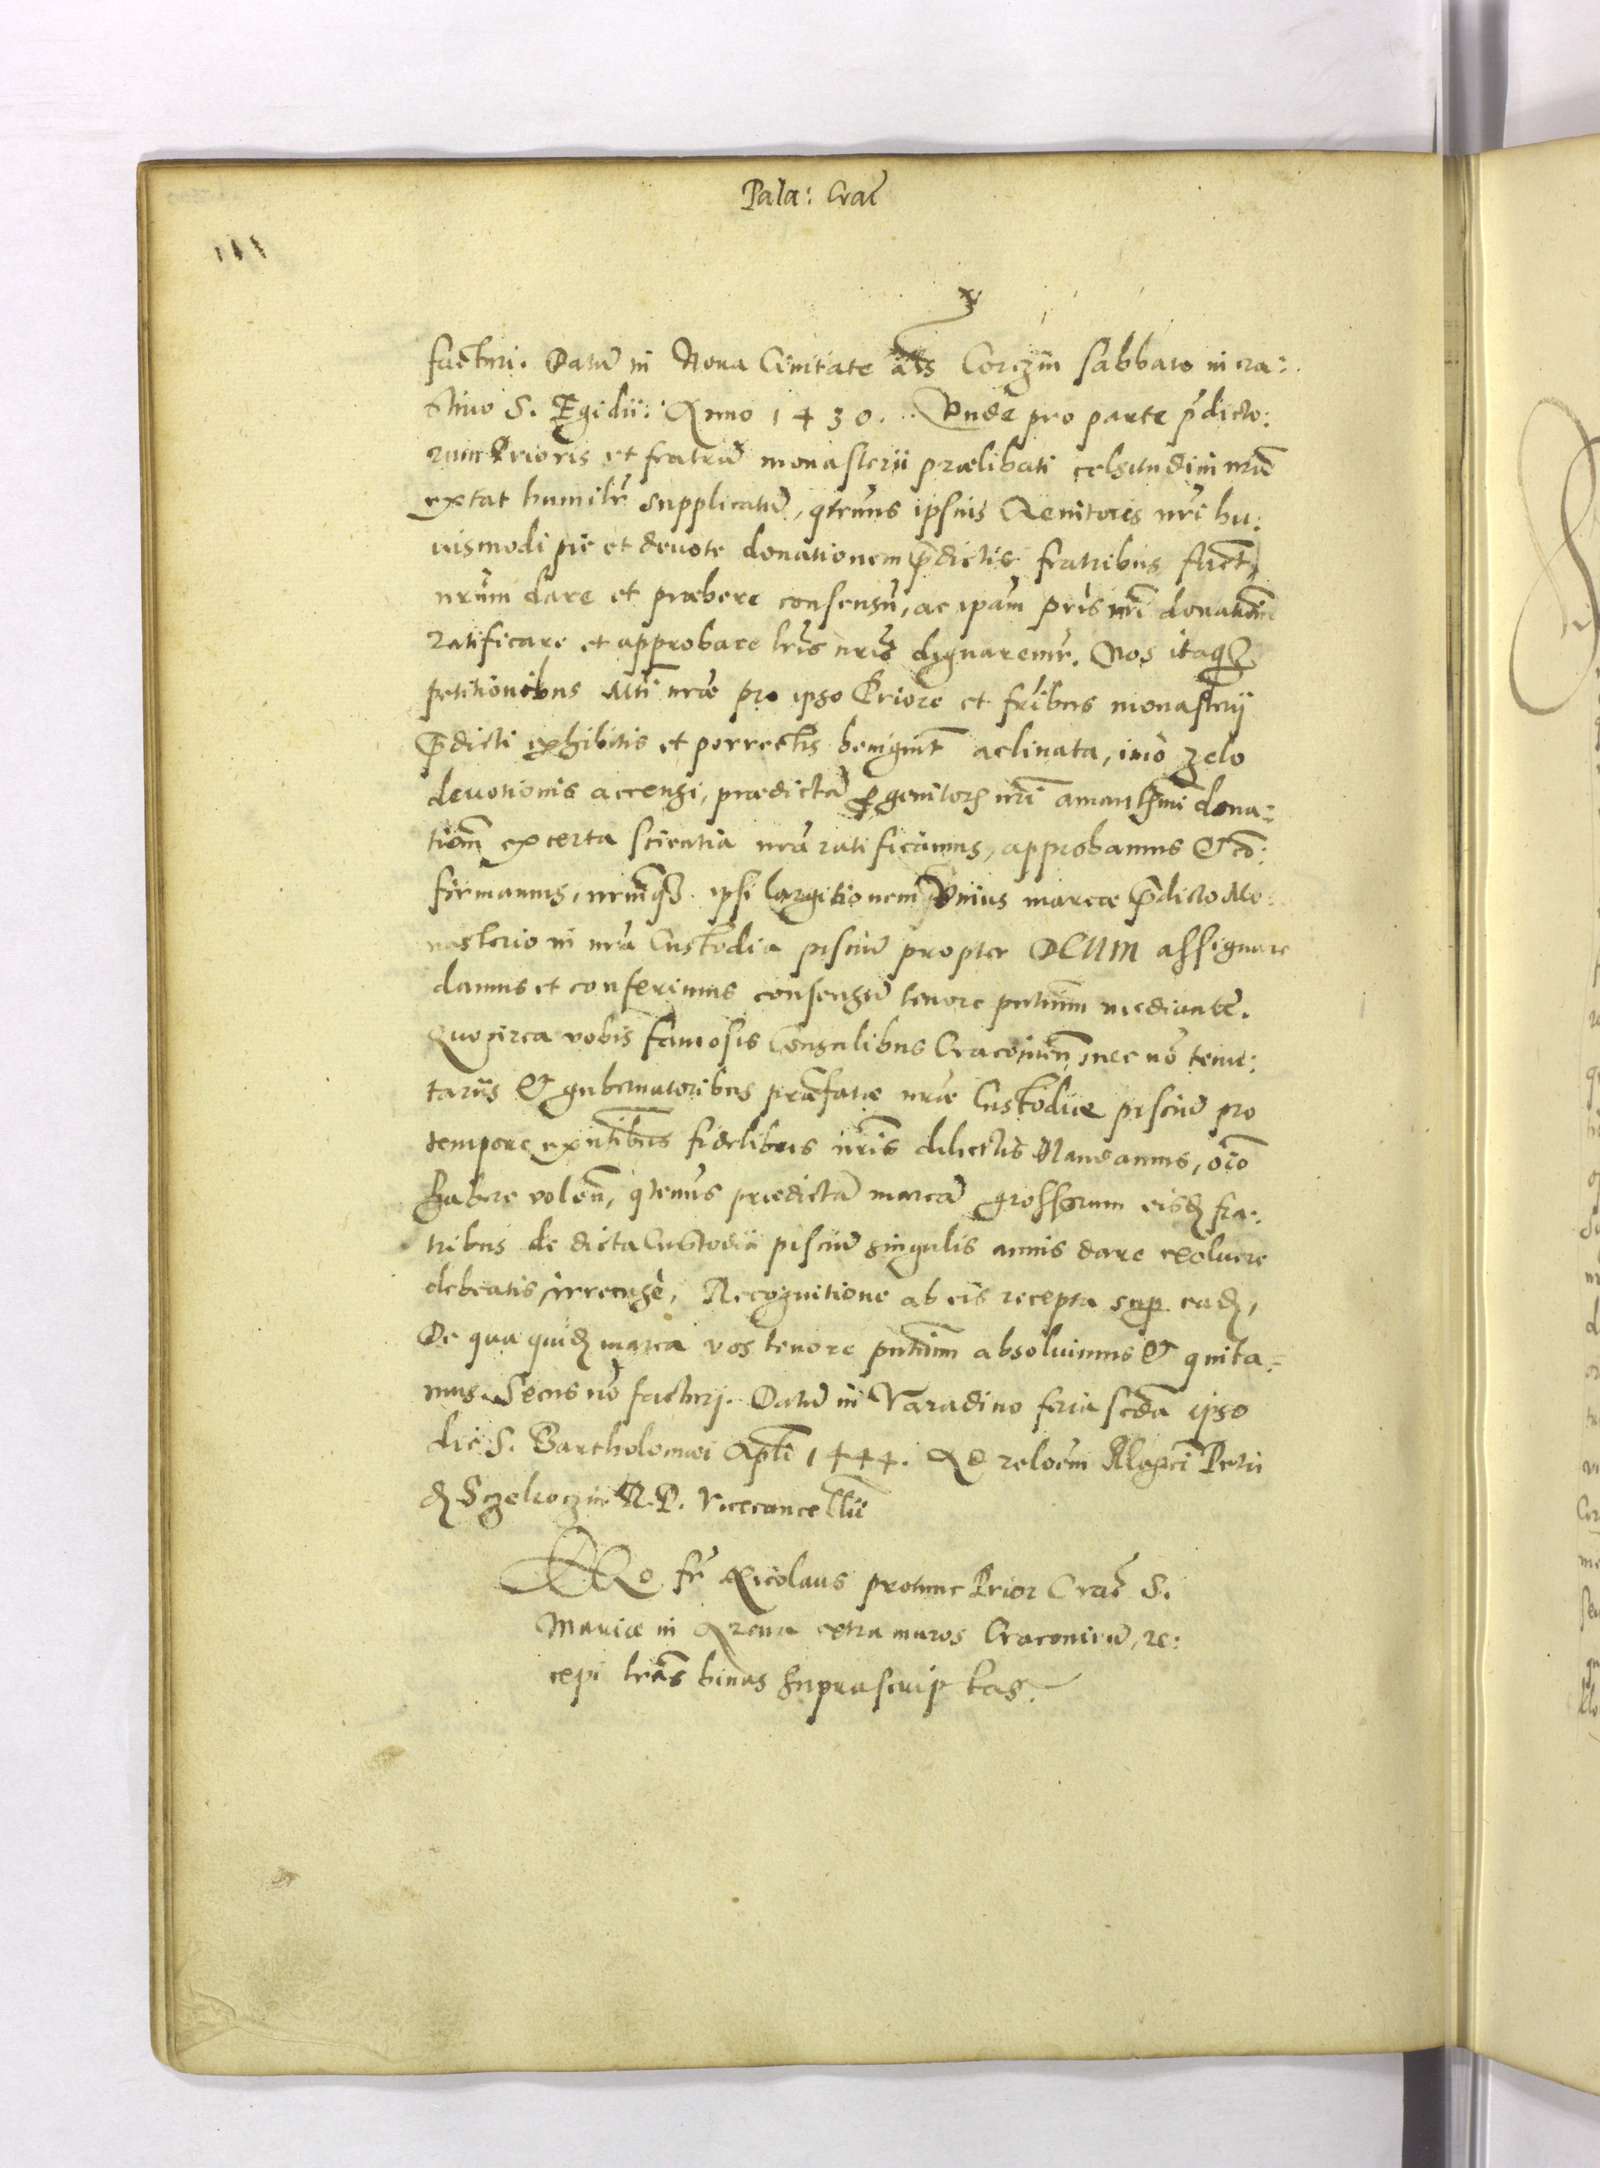 Pala: Crac̃
facturi. Datũ in Noua Ciuitate als Corczin Sabbato in cra:
stino S. Egidii: Anno 1430. Vnde pro parte p̃dicto:
rum Prioris et fratrũ monasterii prælibati celsitudini nr̃æ
extat humilr̃ supplicatũ, q̃tenus ipsius Genitoris nr̃i hu:
iusmodi pie et deuote donationem p̃dictis fratribus fact
nr̃um dare et præbere consensũ, ac ip̃am pr̃is nr̃i donatiõe
ratificare et approbare lr̃is nr̃is dignaremr̃. Nos itaq3
petitionibus Mti nr̃æ pro ipso Priore et fr̃ibus monasterij
p̃dicti exhibitis et porrectis benignit̃ aclinata, imò zelo
deuotionis accensi, prædictã p genitorẽ nr̃i amantissimi dona:
tiõem ex certa scientia nr̃a ratificamus, approbamus & cõ:
firmamus, nr̃umq3 ipsi largitionem vnius marcæ p̃dicto Mo:
nasterio in nr̃a Custodia pisciũ propter DEUM assignare
damus et conferimus consensũ tenore pñtium mediante.
Quocirca vobis famosis Consulibus Cracouieñ, nec nõ tenu:
tariis & gubernatoribus præfatæ nr̃æ Custodiæ pisciũ pro
tempore exñtibus fidelibus nr̃is dilectis Mandamus, oĩo
habere voleñ, q̃tenus prædictã marcã grossorum eisd fra:
tribus de dicta Custodia pisciũ singulis annis dare exoluere
debeatis, irrecusè, Recognitione ab eis recepta sup ead,
De qua quid marca vos tenore pñtium absoluimus & quita:
mus. Secus nõ facturj. Datũ in Varadino feria scda ipso
die S. Bartholomæi Apli 1444. Ad relõem Magci Petri
d Sczekoczin R. P. Vicecancellrii
Ego fr̃ Nicolaus protunc Prior Crac̃ S.
Mariæ in Arena extra muros Cracouieñ, re:
cepi lr̃as binas suprascriptas.